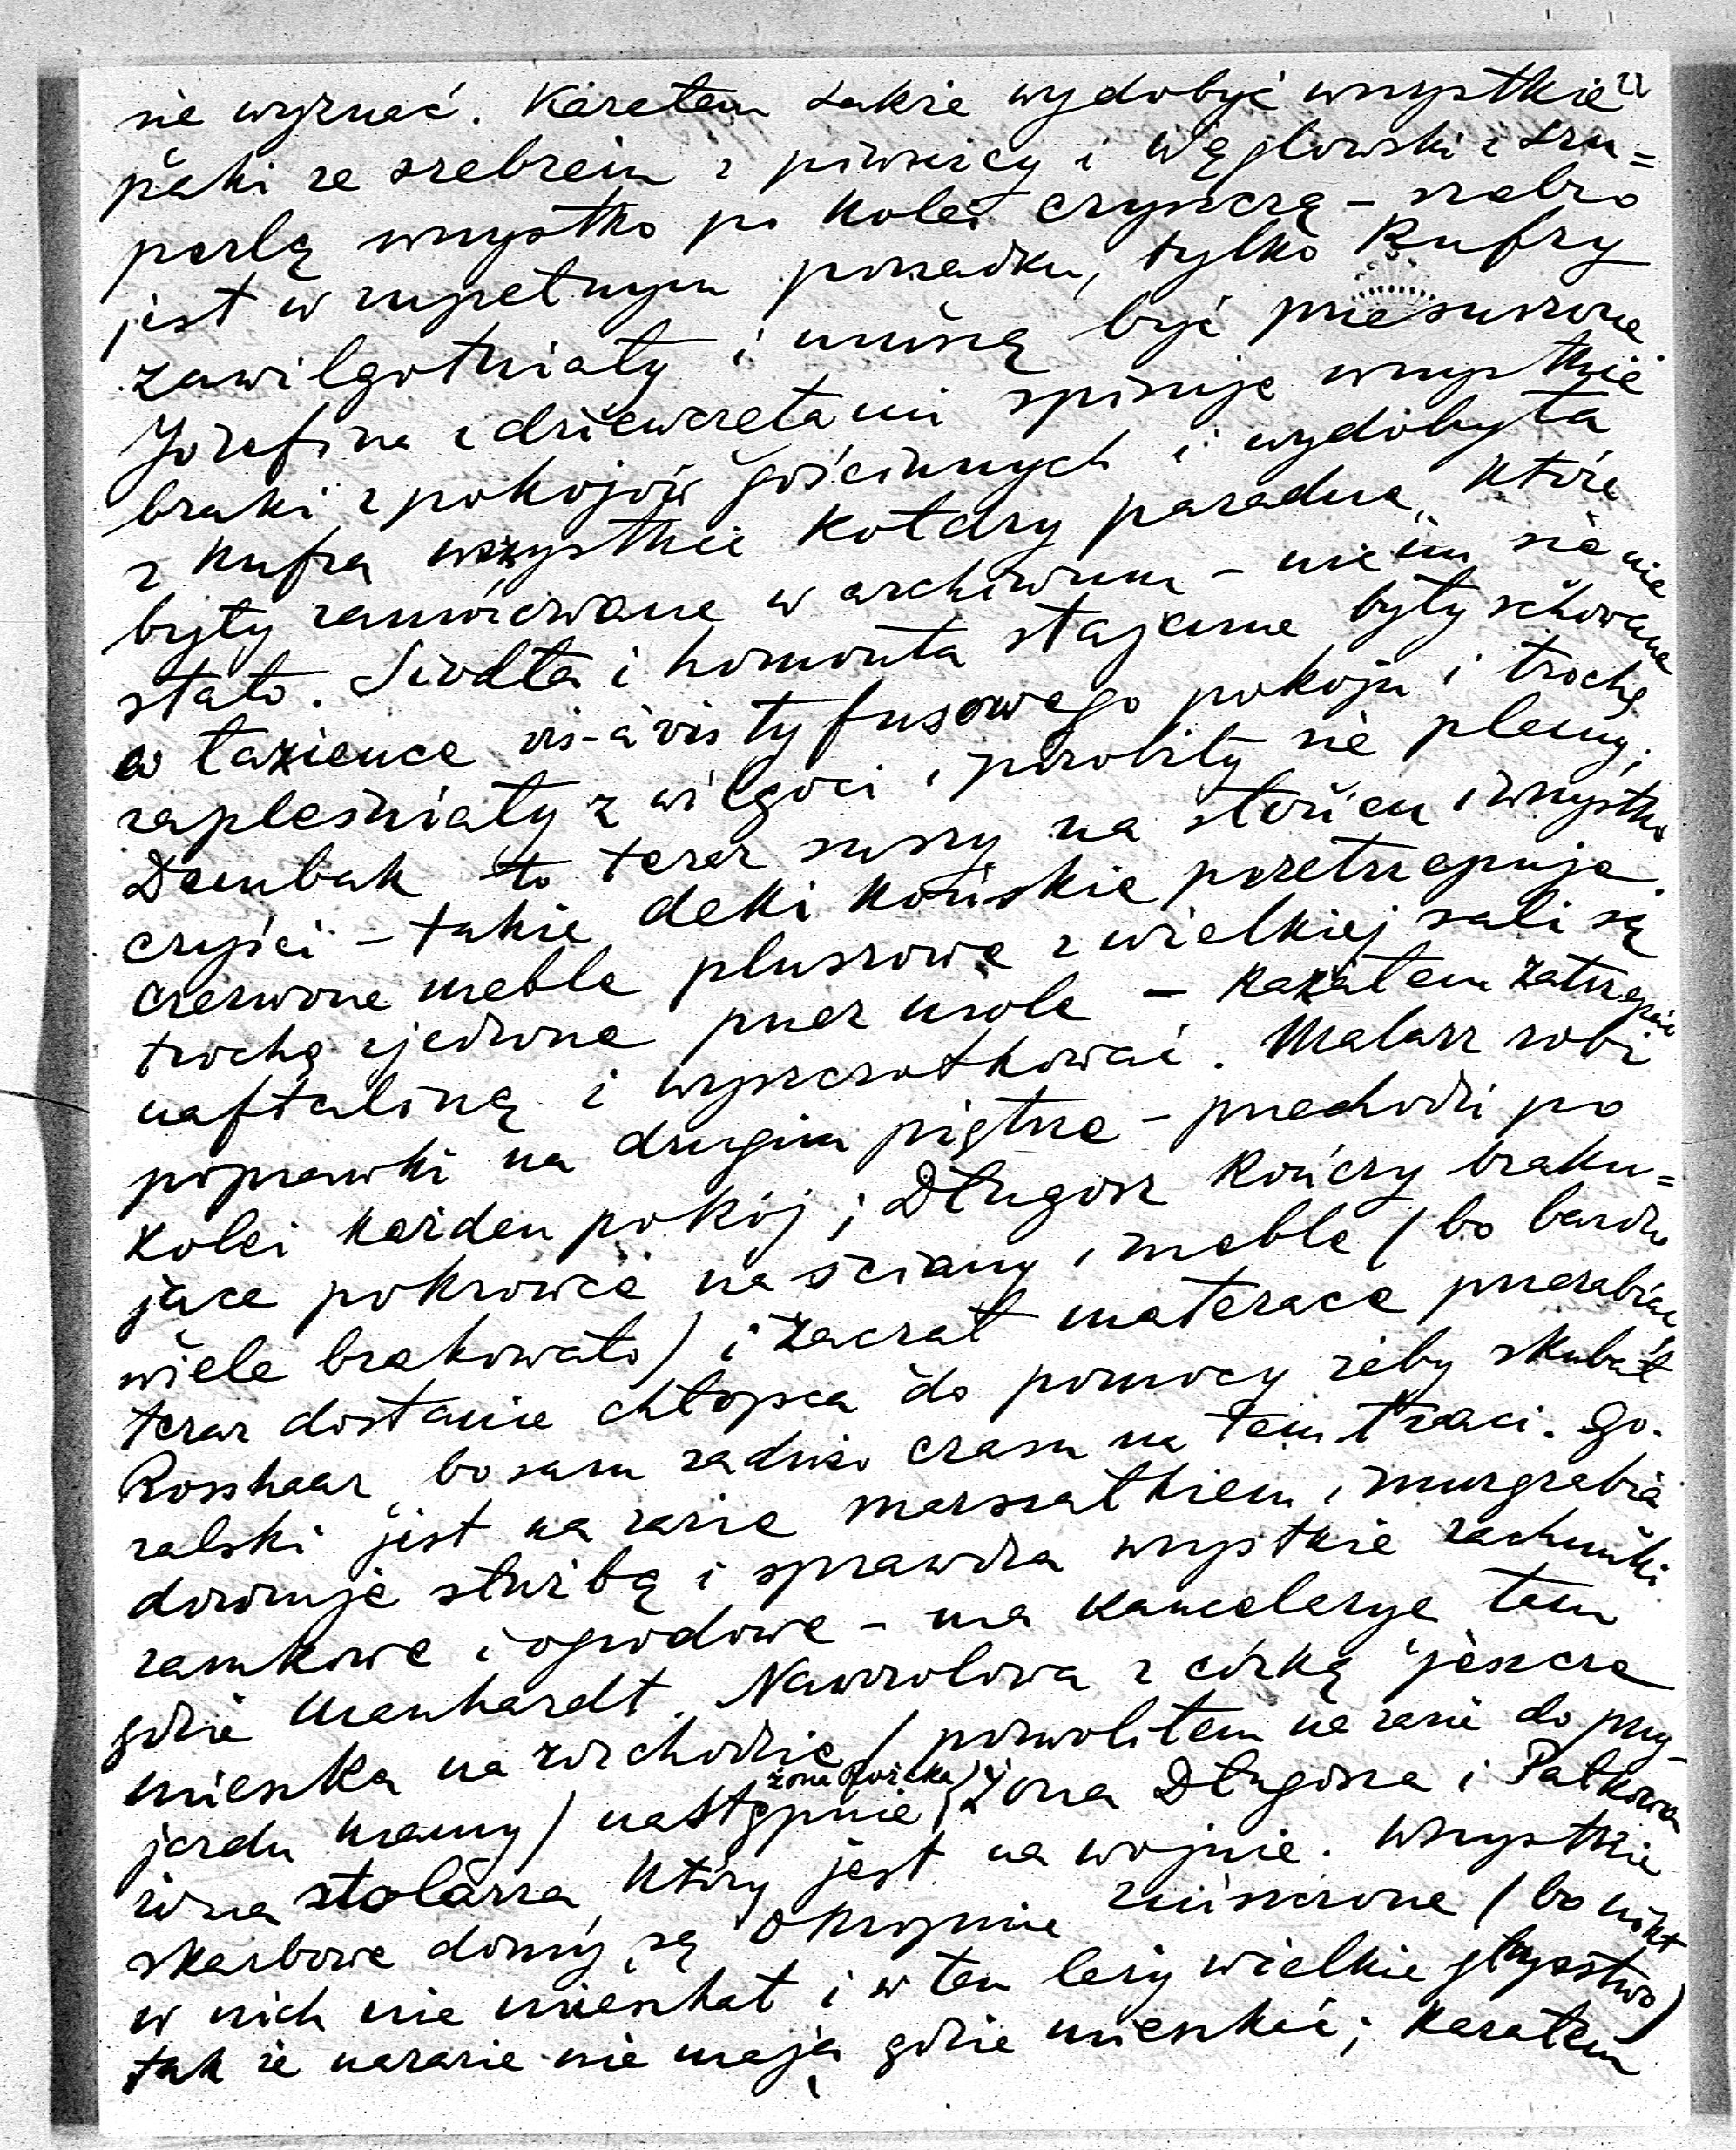 się wyznać. Kazałem także wydobyć wszystkie
paki ze srebrem z piwnicy i Węglowski z Szu=
perlą wszystko po kolei czyszczą – srebro
jest w zupełnym porządku, tylko Kufry
zawilgotniały i muszą być przesuszone
Józefina z dziewczętami spisuje wszystkie
braki z pokojów gościnnych i wydobyła
z Kufra wszystkie kołdry paradne, które
były zamurowane w archiwum – nic im się nie
stało. Siodła i homonta stajenne były schowane
w łazience vis-à-vis tyfusowego pokoju i trochę
zapleśniały z wilgoci i porobiły się plamy;
Dembak to teraz suszy na słońcu i wszystko
czyści – także deki końskie przetrzepuje.
Czerwone meble pluszowe z wielkiej sali są
trochę zjedzone przez mole – kazałem zatrzepać
naftaliną i wyszczotkować. Malarz robi
poprawki na drugim piętrze – przechodzi po
kolei każden pokój; Długosz kończy braku=
jące pokrowce na ściany i meble (bo bardzo
wiele brakowało) i zaczął materace przerabiać
teraz dostanie chłopca do pomocy żeby skubał
Rosshaar, bo sam za dużo czasu na tem traci. Go-
ralski jest na razie marszałkiem i murgrabią
dozoruje służbę i sprawdza wszystkie rachunki
zamkowe i ogrodowe – ma kancelarye tam
gdzie Menhardt. Nawrolowa z córką jeszcze
mieszka na rozchodzie (pozwoliłem na razie do przy-
jazdu Mamy) następnie (żona Rożeka), żona Długosza i Pałkowa
żona stolarza, który jest na wojnie. Wszystkie
skarbowe domy są okropnie zniszczone (bo nikt
w nich nie mieszkał i w tem leży wielkie głupstwo)
tak że narazie nie mają gdzie mieszkać; kazałem